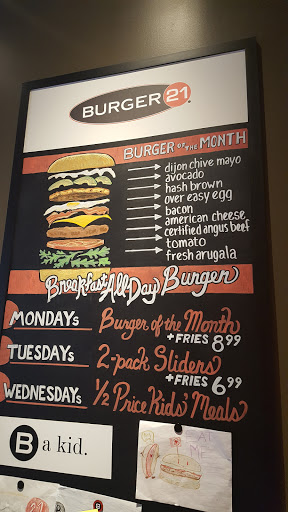 BURGER 21
BURGER OF THE MONTH
dijon chive mayo
avocado
hash brown
over easy egg
bacon
american cheese
certified angus beef
tomato
fresh arugala
Breakfast All Day Burger
MONDAYs Burger of the Month
+FRIES 8.99
TUESDAYs 2-pack Sliders
+FRIES 6.99
WEDNESDAYs ½ Price Kids' Meals
B a kid.
ME
21